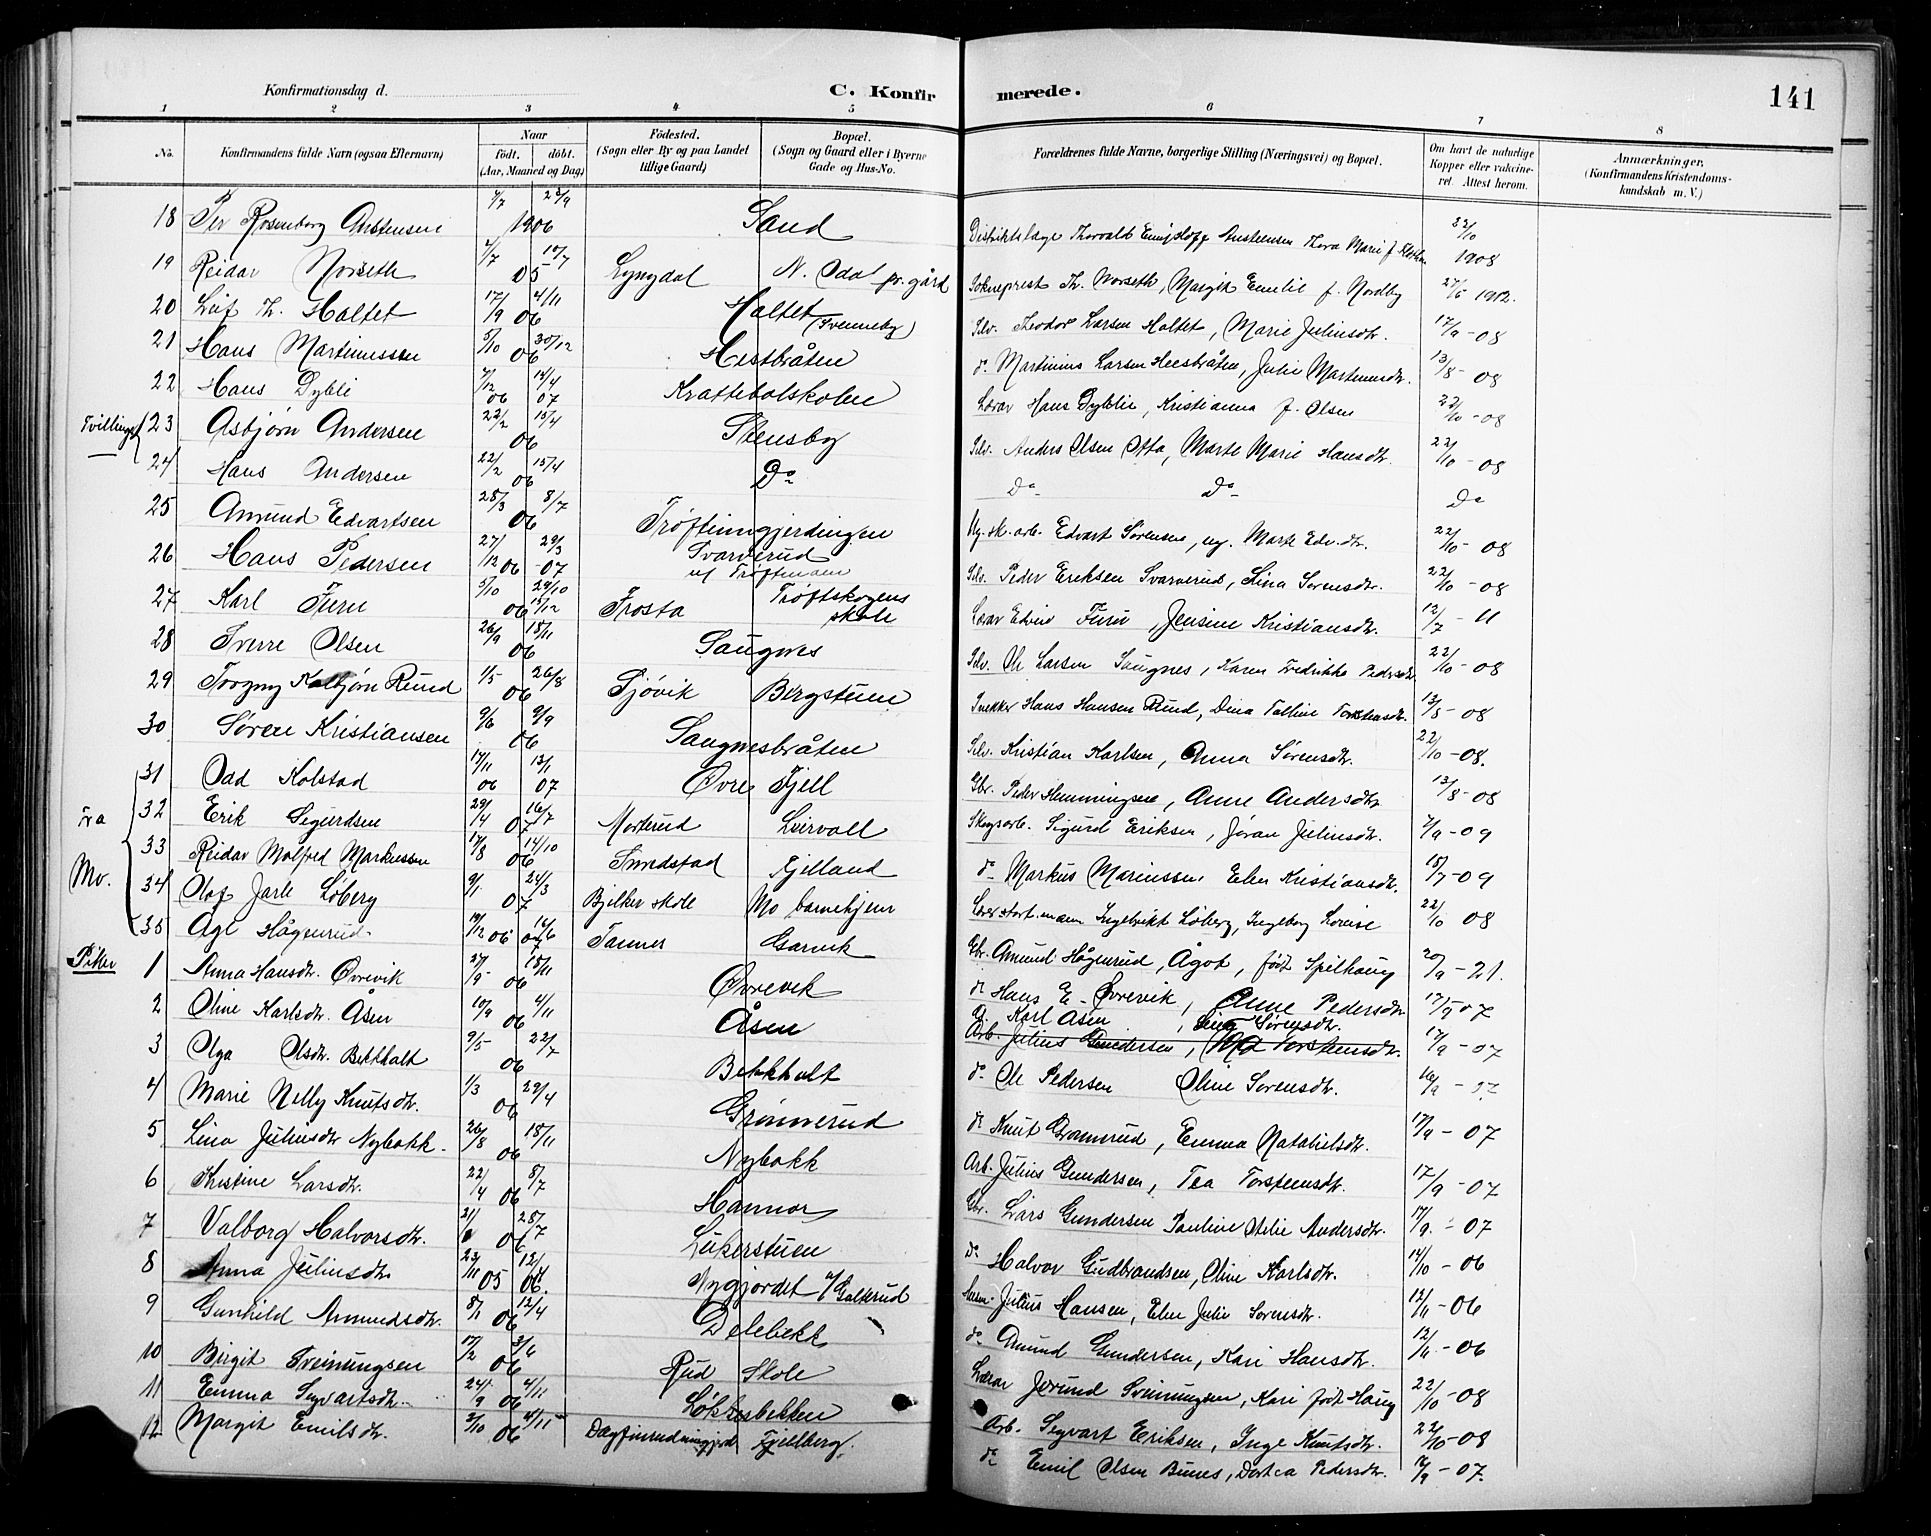 141
Konfirmationsdag d.
C. Konfirmerede.
1 2 3 4 5 6 7 8
No. Konfirmandens fulde Navn (ogsaa Efternavn) Naar født. døbt. (Aar, Maaned og Dag) Fødested. (Sogn eller By og paa Landet tillige Gaard) Bopæl. (Sogn og Gaard eller i Byerne Gade og Hus-No. Forældrenes fulde Navne, borgerlige Stilling (Næringsvei) og Bopæl. Om havt de naturlige Kopper eller vakcineret. Attest herom. Anmærkninger. (Konfirmandens Kristendomskundskab m. V.)
18 Per Rosenborg Austensen 1906 Sand Distriktslæge Thorvald Austensen Thora Marie f. 22/10 1908
19 Reidar Norseth 05 Lyngdal N. Odal pr.gård Sokneprest Th. Norseth, Margit Emilie f. Nordby 1912.
20 Leif Th. Haltet 17/9 4/11 06 Haltet (Svenneby) Selv. Theodor Larsen Haltet, Marie Juliusdtr. 17/9-08
21 Hans Martinussen 5/10 30/12 06 Hestbråten do Martinius Larsen Heesbråten, Julie Martinusdtr. 13/8-08
22 Hans Dybli 06 14/4 07 Krattebølskolen Lærar Hans Dyblie, Kristianna f. Olsen 22/10-08
Tvillinger 23 Asbjørn Andersen 22/2 15/4 06 Stensby Selv. Anders Olsen Otta, Marte Marie Hansdtr. 22/10-08
24 Hans Andersen 22/2 15/4 06 Do Do Do Do
25 Amund Edvartsen 28/3 8/7 06 Trøftinngjerdingen Ug. sk. arb. Edvart Sørensen, ug. Marte Edv.dtr. 22/10-08
26 Hans Pedersen 27/12 06 29/3 07 Svarverud u/ Trøftinaen Selv. Peder Eriksen Svarverud, Lina Sørensdtr. 22/10-08
27 Karl Furu 5/10 06 Frosta Trøftskogens skole Lærar Edvin Furu, Jensine Kristiansdtr. 12/7-11
28 Sverre Olsen 26/9 18/11 06 Saugnes Selv. Ole Larsen Saugnes, Karen Fredrikke Pedersdtr 22/10-08
29 Torgny Kolbjørn Rund 1/5 26/8 06 Gjøvik Bergstuen Snekker Hans Hansen Rund, Dina Tolline Torstensdtr. 13/8-08
30 Søren Kristiansen 9/6 9/9 06 Saugnesbråten Selv. Kristian Karlsen, Anna Sørensdtr. 22/10-08.
31 Odd Kolstad 06 13/1 07 Øvre Fjell Gbr. Peder Hemmingsen, Anne Andersdtr 13/8-08
Fra Mo. 32 Erik Sigurdsen 29/4 16/7 07 Morterud Leirvoll Skogsarb. Sigurd Eriksen, Jøran Juliusdtr. 7/9-09
33 Reidar Molfred Markussen 17/8 14/10 06 Sundstad Fjelland do Markus Marinssen Elen Kristiansdtr. 15/7-09
34 Olaf Jarle Løberg 9/1 24/3 07 Bjelker skole Mo barnehjem Lærer Ingebrikt Løberg, Ingeborg Lovise 22/10 08
35 Agl Hågenrud 06 16/6 07 Tanner Garvik Gbr. Amund Hågenrud, Ågot, født Spilhaug 20/9-21.
Piker 1 Anna Hansdtr. Øvrevik 27/9 18/11 06 Øvrevik do Hans E. Øvrevik, Anne Pedersdtr 17/9-07
2 Oline Karlsdtr. Åsen 10/9 4/11 06 Åsen Karl Åsen, Lina Sørensdtr.
Arb. Julius Gundersen, Torstensdtr. 17/9-07
3 Olga Olsdtr. Bekkholt 9/5 22/7 06 Bekkholt do Ole Pedersen Oline Sørensdtr.
4 Marie Nelly Knutsdtr. 1/3 29/4 06 Grønnerud do Knut Grønnrud, Emma Natalielsdtr. 17/9-07
5 Lina Juliusdtr Nybakk. 26/8 18/11 06 Nybakk Arb. Julius Gundersen, Tea Torstensdtr. 17/9-07
6 Kristine Larsdtr. 22/4 8/7 06 Hannor Gbr. Lars Gundersen Pauline Otilie Andersdtr. 17/9-07
7 Valborg Halvorsdtr. 06 Løkerstuen do Halvor Gudbrandsen, Oline Karlsdtr. 14/10-06
8 Anna Juliusdtr 23/11 05 06. Nygjordet u/ Galterud Julius Hansen, Elen Julie Sørensdtr. 12/11-06
9 Gunhild Amundsdtr. 8/1 12/4 06 Delebekk do Amund Gundersen, Kari Hansdtr. 12/11-06
10 Birgit Sveinungsen 06 Rud Skole Lærar Jørund Sveinungsen, Kari født Haug 22/10-08
11 Emma Sigvartsdtr. 24/9 4/11 06 Løkkesbekken Arb. Sigvart Eriksen, Inge Knutsdtr. 22/10-08
12 Margit Emilsdtr. 06 4/11 Dagfinrudningjord Fjellberg. do Emil Olsen Bunes, Dortea Pedersdtr. -07.